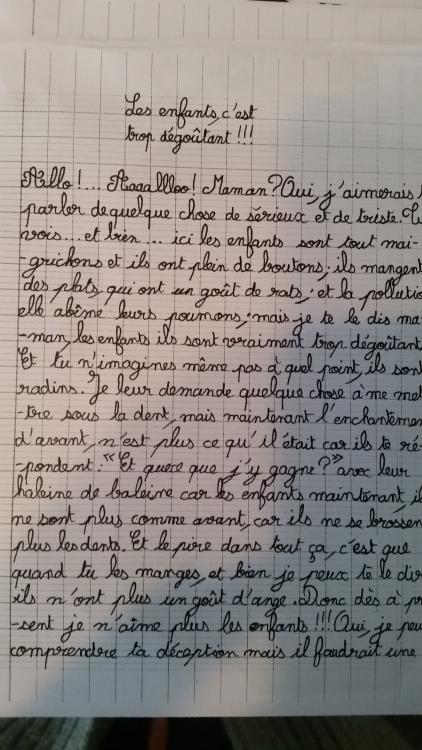 Les enfants, c'est
trop dégoûtant !!!
Allo !... Aaaallloo ! Maman ? Oui, j'aimerais
parler de quelque chose de sérieux et de triste. Tu
vois... et bien... ici les enfants sont tout mai-
-grichons et ils ont plein de boutons ; ils mangent
des plats, qui ont un goût de rats ; et la pollutio
elle abîme leurs poumons ; mais je te le dis ma-
-man, les enfants ils sont vraiment trop dégoûtant
Et tu n'imagines même pas à quel point, ils son
radins. Je leur demande quelque chose à me met
-tre sous la dent, mais maintenant l'enchantemen
d'avant, n'est plus ce qu'il était car ils te ré-
-pondent : « Et que j'y gagne ? » avec leur
haleine de baleine car les enfants maintenant, il
ne sont plus comme avant, car ils ne se brossen
plus les dents. Et le pire dans tout ça, c'est que
quand tu les manges, et bien je peux te le dir
ils n'ont plus un goût d'ange. Donc dès à pr
-sent je n'aime plus les enfants !!! Oui, je peu
comprendre ta déception mais il faudrait une